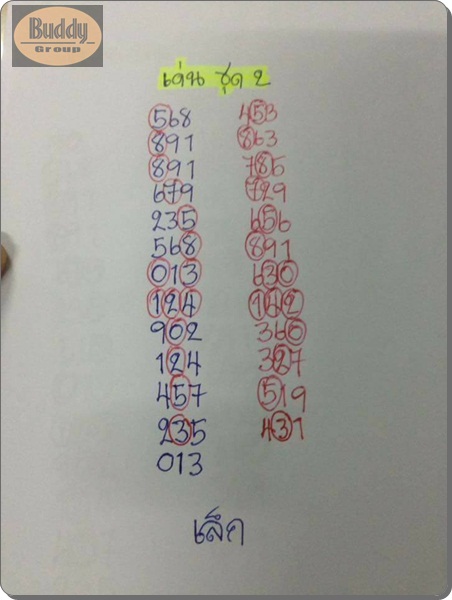 Buddy
Group
เด่น ชุด 2
568 453
891 863
891 785
679 729
235 656
568 891
013 630
124 142
902 360
124 327
457 519
235 431
013
เล็ก